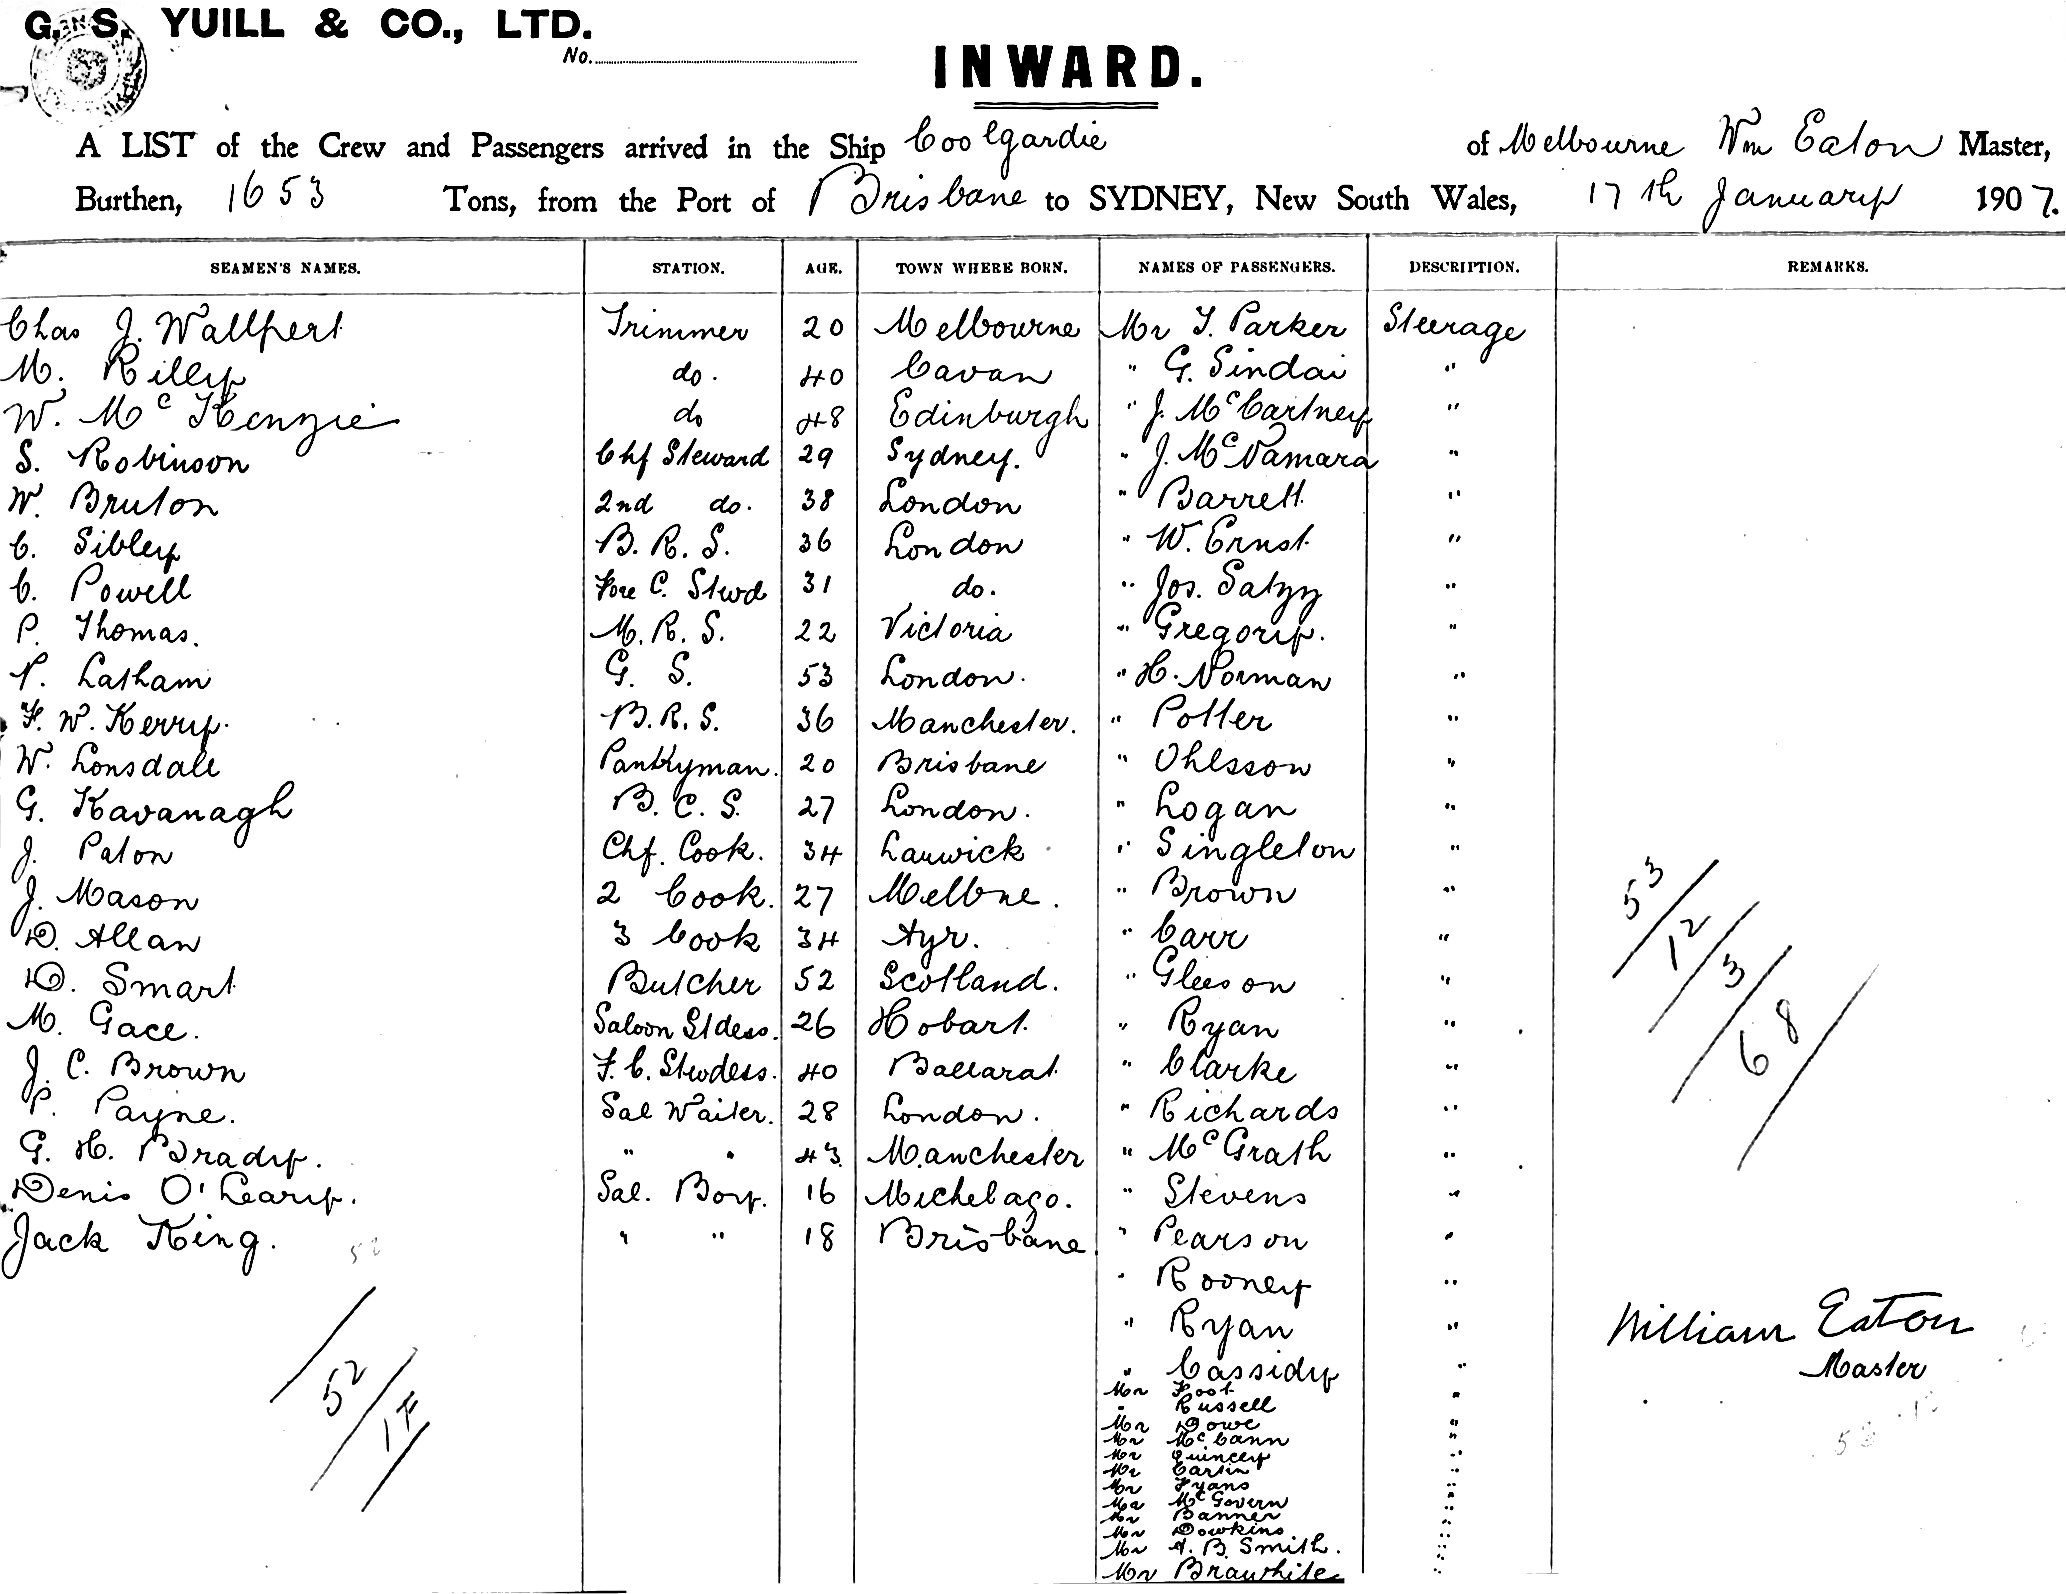 G. S. YUILL & CO., LTD.
No.
INWARD.
A LIST of the Crew and Passengers arrived in the Ship Coolgardie of Melbourne Wm Eaton Master,
Burthen, 1653 Tons, from the Port of Brisbane to SYDNEY, New South Wales, 17th January 1907.
SEAMEN'S NAMES. STATION. AGE. TOWN WHERE BORN. NAMES OF PASSENGERS. DESCRIPTION. REMARKS.
Chas J. Wallpert Trimmer 20 Melbourne Mr T. Parker Steerage
M. Riley do. 40 Cavan " G. Sindai "
W. McKenzie do 48 Edinburgh " J. McCartney "
S. Robinson Chf Steward 29 Sydney. " J. McNamara "
W. Bruton 2nd do. 38 London " Barrett "
C. Sibley B. R. S. 36 London " W. Ernst "
C. Powell Fore C. Stwd 31 do. " Jos. Satzy "
P. Thomas. M. R. S. 22 Victoria " Gregory. "
P. Latham G. S. 53 London. " H. Norman "
F. W. Kerry. B. R. S. 36 Manchester. " Potter "
W. Lonsdale Pantryman. 20 Brisbane " Ohlsson "
G. Kavanagh B. C. S. 27 London. " Logan "
J. Paton Chf. Cook. 34 Larwick " Singleton "
J. Mason 2 Cook. 27 Melbne. " Brown "
D. Allan 3 Cook 34 Ayr. " Carr "
D. Smart Butcher 52 Scotland. " Gleeson "
M. Gace. Saloon Stdess. 26 Hobart. " Ryan "
J. C. Brown F. C. Stwdess. 40 Ballarat. " Clarke "
P. Payne. Sal Waiter. 28 London. " Richards "
G. H. Brady. " " 43 Manchester " McGrath "
Denis O'Leary. Sal. Boy. 16 Michelago. " Stevens "
Jack King. " " 18 Brisbane " Pearson "
" Rooney "
" Ryan "
" Cassidy "
Mr Foot "
" Russell
Mr Dowe "
Mr McCann "
Mr Quincey "
Mr Cartin "
Mr Fyans "
Mr McGovern "
Mr Banner "
Mr Dowkins "
Mr A. B. Smith. "
Mr Brawhite "
53/12/3/68
William Eaton
Master
52
52/1F